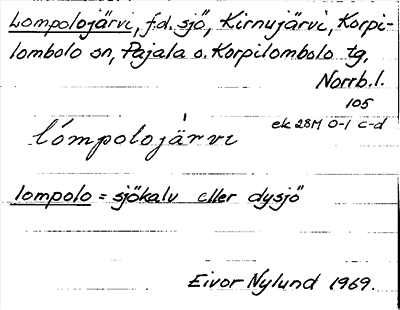 Lompolojärvi, f.d. sjö, Kirnujärvi, Korpi-
lombolo sn, Pajala o. Korpilombolo tg,
Norrb. l.
105
ek 28M 0-1 c-d
lómpolojàrvi
lompolo = sjökalv eller dysjö
Eivor Nylund 1969.